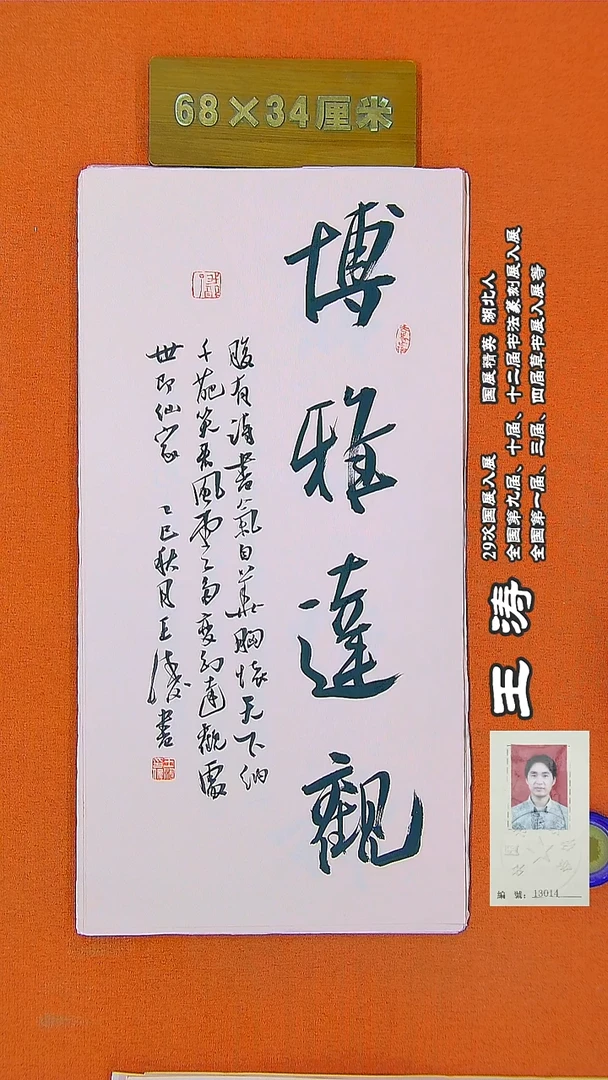 68×34厘米
博雅達觀
腹有诗書氣自華胸懷天下納
千葩笑看風雲多變幻達觀處
世即仙家 乙巳秋月王涛書
29次国展入展 国展精英 湖北人
全国第九届、十届、十二届书法篆刻展入展
全国第一届、三届、四届草书展入展等
王涛
编號：13014